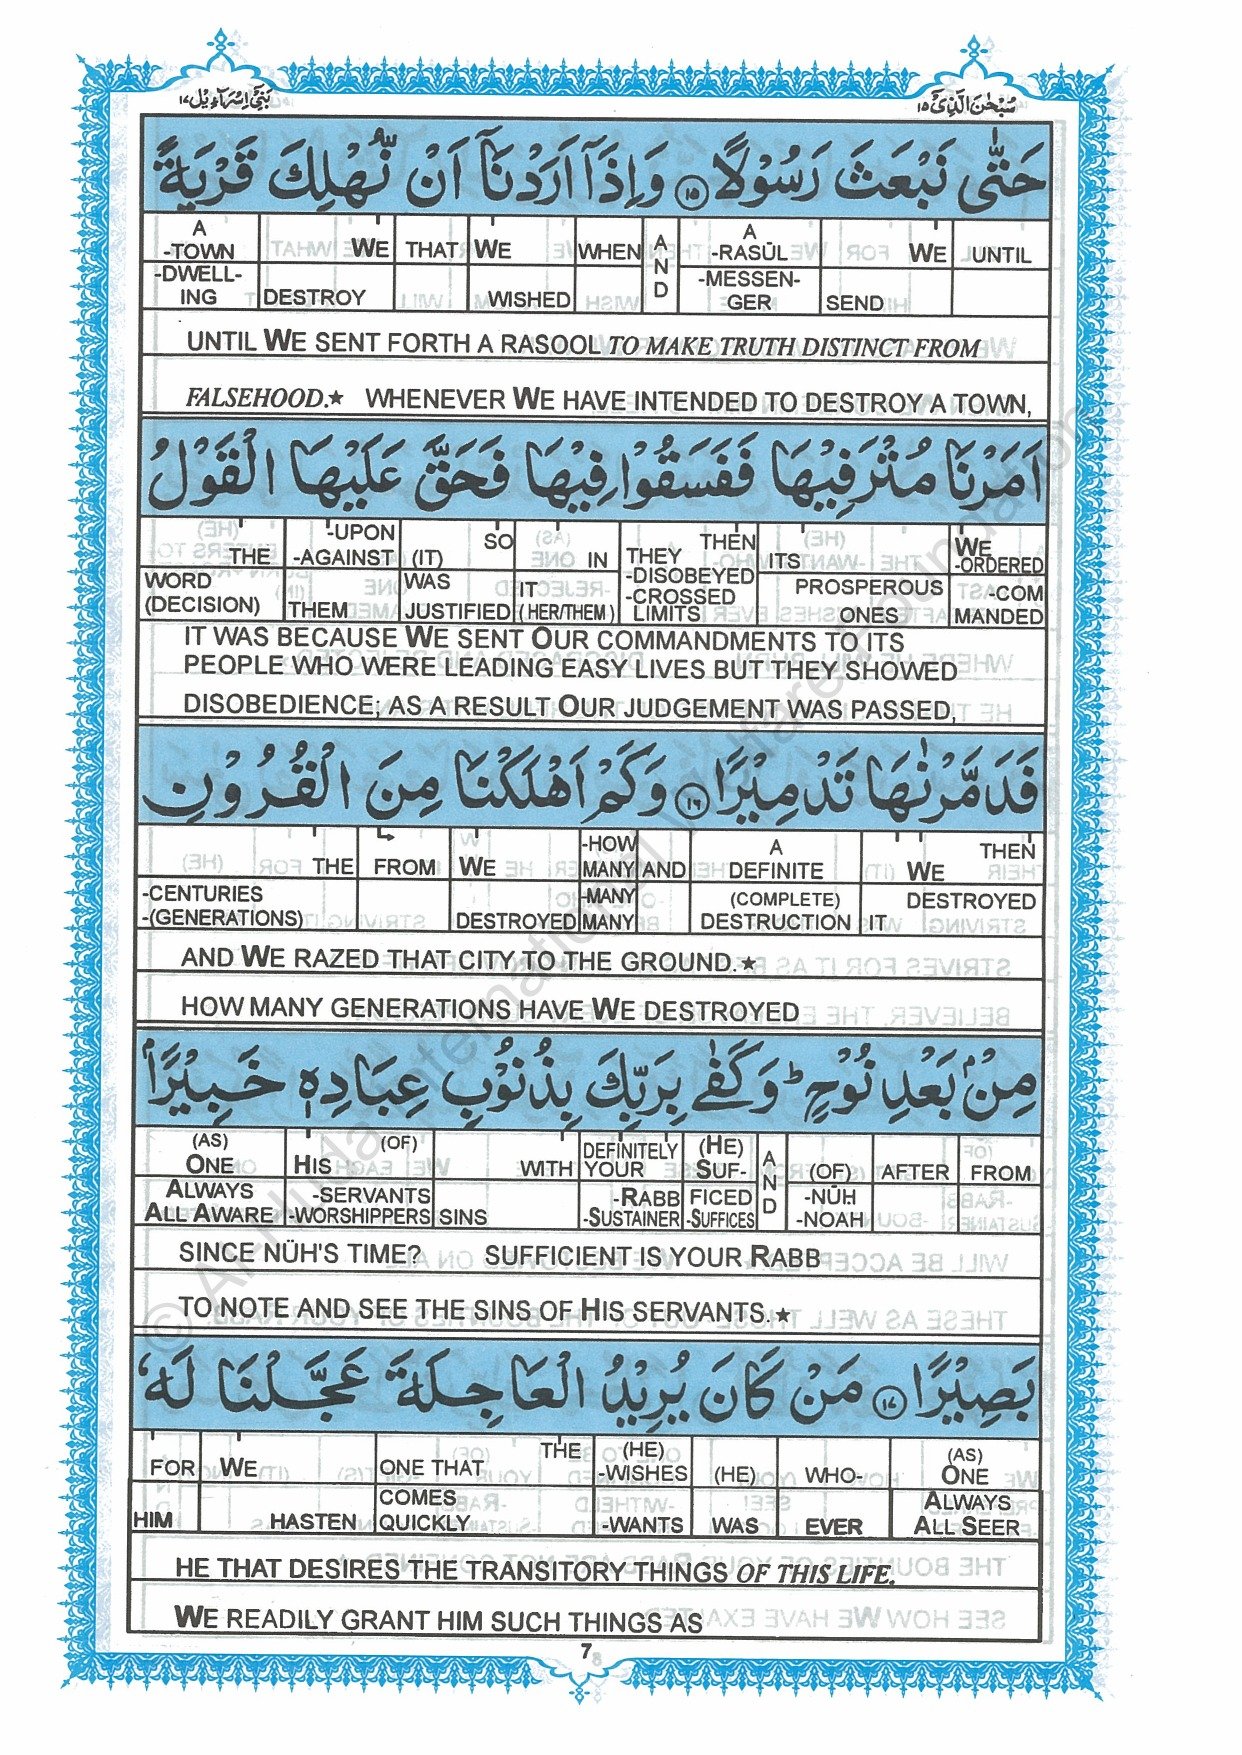 بَنِیْٓ اِسْرَآءِیْل ١٧
سُبْحٰنَ الَّذِیْٓ ١٥
حَتّٰى نَبْعَثَ رَسُوْلًا ﴿١٥﴾ وَاِذَآ اَرَدْنَآ اَنْ نُّهْلِكَ قَرْيَةً
A WE THAT WE WHEN AND A WE UNTIL
-TOWN -RASŪL
-DWELL- -MESSEN-
ING DESTROY WISHED GER SEND
UNTIL WE SENT FORTH A RASOOL TO MAKE TRUTH DISTINCT FROM
FALSEHOOD.★ WHENEVER WE HAVE INTENDED TO DESTROY A TOWN,
اَمَرْنَا مُتْرَفِيْهَا فَفَسَقُوْا فِيْهَا فَحَقَّ عَلَيْهَا الْقَوْلُ
-UPON SO THEN WE
THE -AGAINST (IT) IN THEY ITS -ORDERED
WORD WAS IT -DISOBEYED PROSPEROUS -COM
(DECISION) THEM JUSTIFIED (HER/THEM) -CROSSED LIMITS ONES MANDED
IT WAS BECAUSE WE SENT OUR COMMANDMENTS TO ITS
PEOPLE WHO WERE LEADING EASY LIVES BUT THEY SHOWED
DISOBEDIENCE; AS A RESULT OUR JUDGEMENT WAS PASSED,
فَدَمَّرْنٰهَا تَدْمِيْرًا ﴿١٦﴾ وَكَمْ اَهْلَكْنَا مِنَ الْقُرُوْنِ
-HOW A THEN
THE FROM WE MANY AND DEFINITE WE
-CENTURIES -MANY (COMPLETE) DESTROYED
-(GENERATIONS) DESTROYED MANY DESTRUCTION IT
AND WE RAZED THAT CITY TO THE GROUND.★
HOW MANY GENERATIONS HAVE WE DESTROYED
مِنْۢ بَعْدِ نُوْحٍ ؕ وَكَفٰى بِرَبِّكَ بِذُنُوْبِ عِبَادِهٖ خَبِيْرًۢا
(AS) (OF) DEFINITELY (HE) AND
ONE HIS WITH YOUR SUF- (OF) AFTER FROM
ALWAYS -SERVANTS -RABB FICED -NŪH
ALL AWARE -WORSHIPPERS SINS -SUSTAINER -SUFFICES -NOAH
SINCE NŪH'S TIME? SUFFICIENT IS YOUR RABB
TO NOTE AND SEE THE SINS OF HIS SERVANTS.★
بَصِيْرًا ﴿١٧﴾ مَنْ كَانَ يُرِيْدُ الْعَاجِلَةَ عَجَّلْنَا لَهٗ
THE (HE) (AS)
FOR WE ONE THAT -WISHES (HE) WHO- ONE
COMES ALWAYS
HIM HASTEN QUICKLY -WANTS WAS EVER ALL SEER
HE THAT DESIRES THE TRANSITORY THINGS OF THIS LIFE.
WE READILY GRANT HIM SUCH THINGS AS
7
© Al-Huda International Welfare Foundation